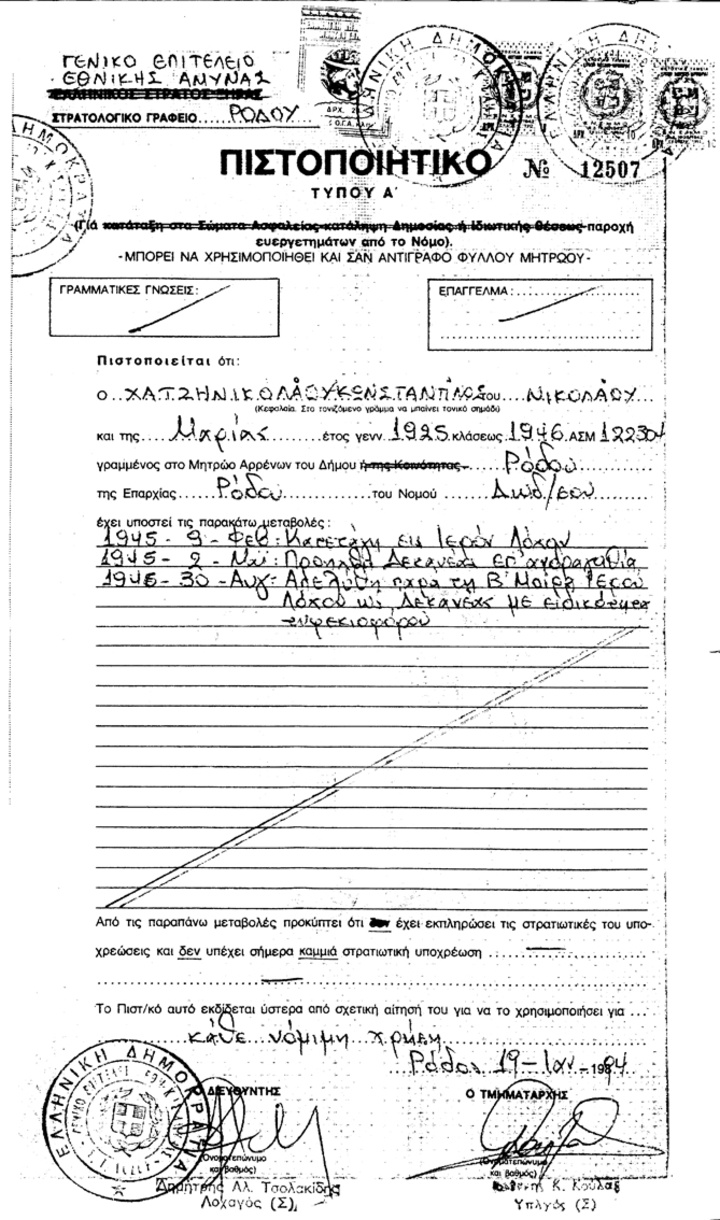 ΓΕΝΙΚΟ ΕΠΙΤΕΛΕΙΟ
ΕΘΝΙΚΗΣ ΑΜΥΝΑΣ
ΕΛΛΗΝΙΚΟΣ ΣΤΡΑΤΟΣ ΞΗΡΑΣ
ΣΤΡΑΤΟΛΟΓΙΚΟ ΓΡΑΦΕΙΟ ..... ΡΟΔΟΥ
ΕΛΛΗΝΙΚΗ ΔΗΜΟΚΡΑΤΙΑ
ΠΙΣΤΟΠΟΙΗΤΙΚΟ № 12507
ΤΥΠΟΥ Α΄
(Γιά κατάταξη στα Σώματα Ασφαλείας-κατάληψη Δημοσίας ή Ιδιωτικής θέσεως-παροχή
ευεργετημάτων από το Νόμο).
-ΜΠΟΡΕΙ ΝΑ ΧΡΗΣΙΜΟΠΟΙΗΘΕΙ ΚΑΙ ΣΑΝ ΑΝΤΙΓΡΑΦΟ ΦΥΛΛΟΥ ΜΗΤΡΩΟΥ-
ΓΡΑΜΜΑΤΙΚΕΣ ΓΝΩΣΕΙΣ: ΕΠΑΓΓΕΛΜΑ:
Πιστοποιείται ότι:
ο ΧΑΤΖΗΝΙΚΟΛΑΟΥ ΚΩΝΣΤΑΝΤΙΝΟΣ του ΝΙΚΟΛΑΟΥ
(Κεφαλαία. Στο τονιζόμενο γράμμα να μπαίνει τονικό σημάδι)
και της Μαρίας έτος γενν. 1925 κλάσεως 1946 ΑΣΜ 122304
γραμμένος στο Μητρώο Αρρένων του Δήμου ή της Κοινότητας Ρόδου
της Επαρχίας Ρόδου του Νομού Δωδ/σου
έχει υποστεί τις παρακάτω μεταβολές:
1945 - 9 - Φεβ: Κατετάγη εις Ιερόν Λόχον
1945 - 2 - Μαϊ: Προήχθη Δεκανέας επ' ανδραγαθία
1945 - 30 - Αυγ: Απελύθη παρά της Β' Μοίρα Ιερού
Λόχου ως Δεκανέας με ειδικότητα
τυφεκιοφόρου
Από τις παραπάνω μεταβολές προκύπτει ότι δεν έχει εκπληρώσει τις στρατιωτικές του υπο-
χρεώσεις και δεν υπέχει σήμερα καμμιά στρατιωτική υποχρέωση
Το Πιστ/κό αυτό εκδίδεται ύστερα από σχετική αίτησή του για να το χρησιμοποιήσει για ...
κάθε νόμιμη χρήση
Ρόδος 19 - Ιαν - 1994
Ο ΔΙΕΥΘΥΝΤΗΣ Ο ΤΜΗΜΑΤΑΡΧΗΣ
(Ονοματεπώνυμο (Ονοματεπώνυμο
και βαθμός) και βαθμός)
Δημήτρης Αλ. Τσολακίδης Κ. Κουλαξ
Λοχαγός (Σ) Υπλγός (Σ)
ΕΛΛΗΝΙΚΗ ΔΗΜΟΚΡΑΤΙΑ